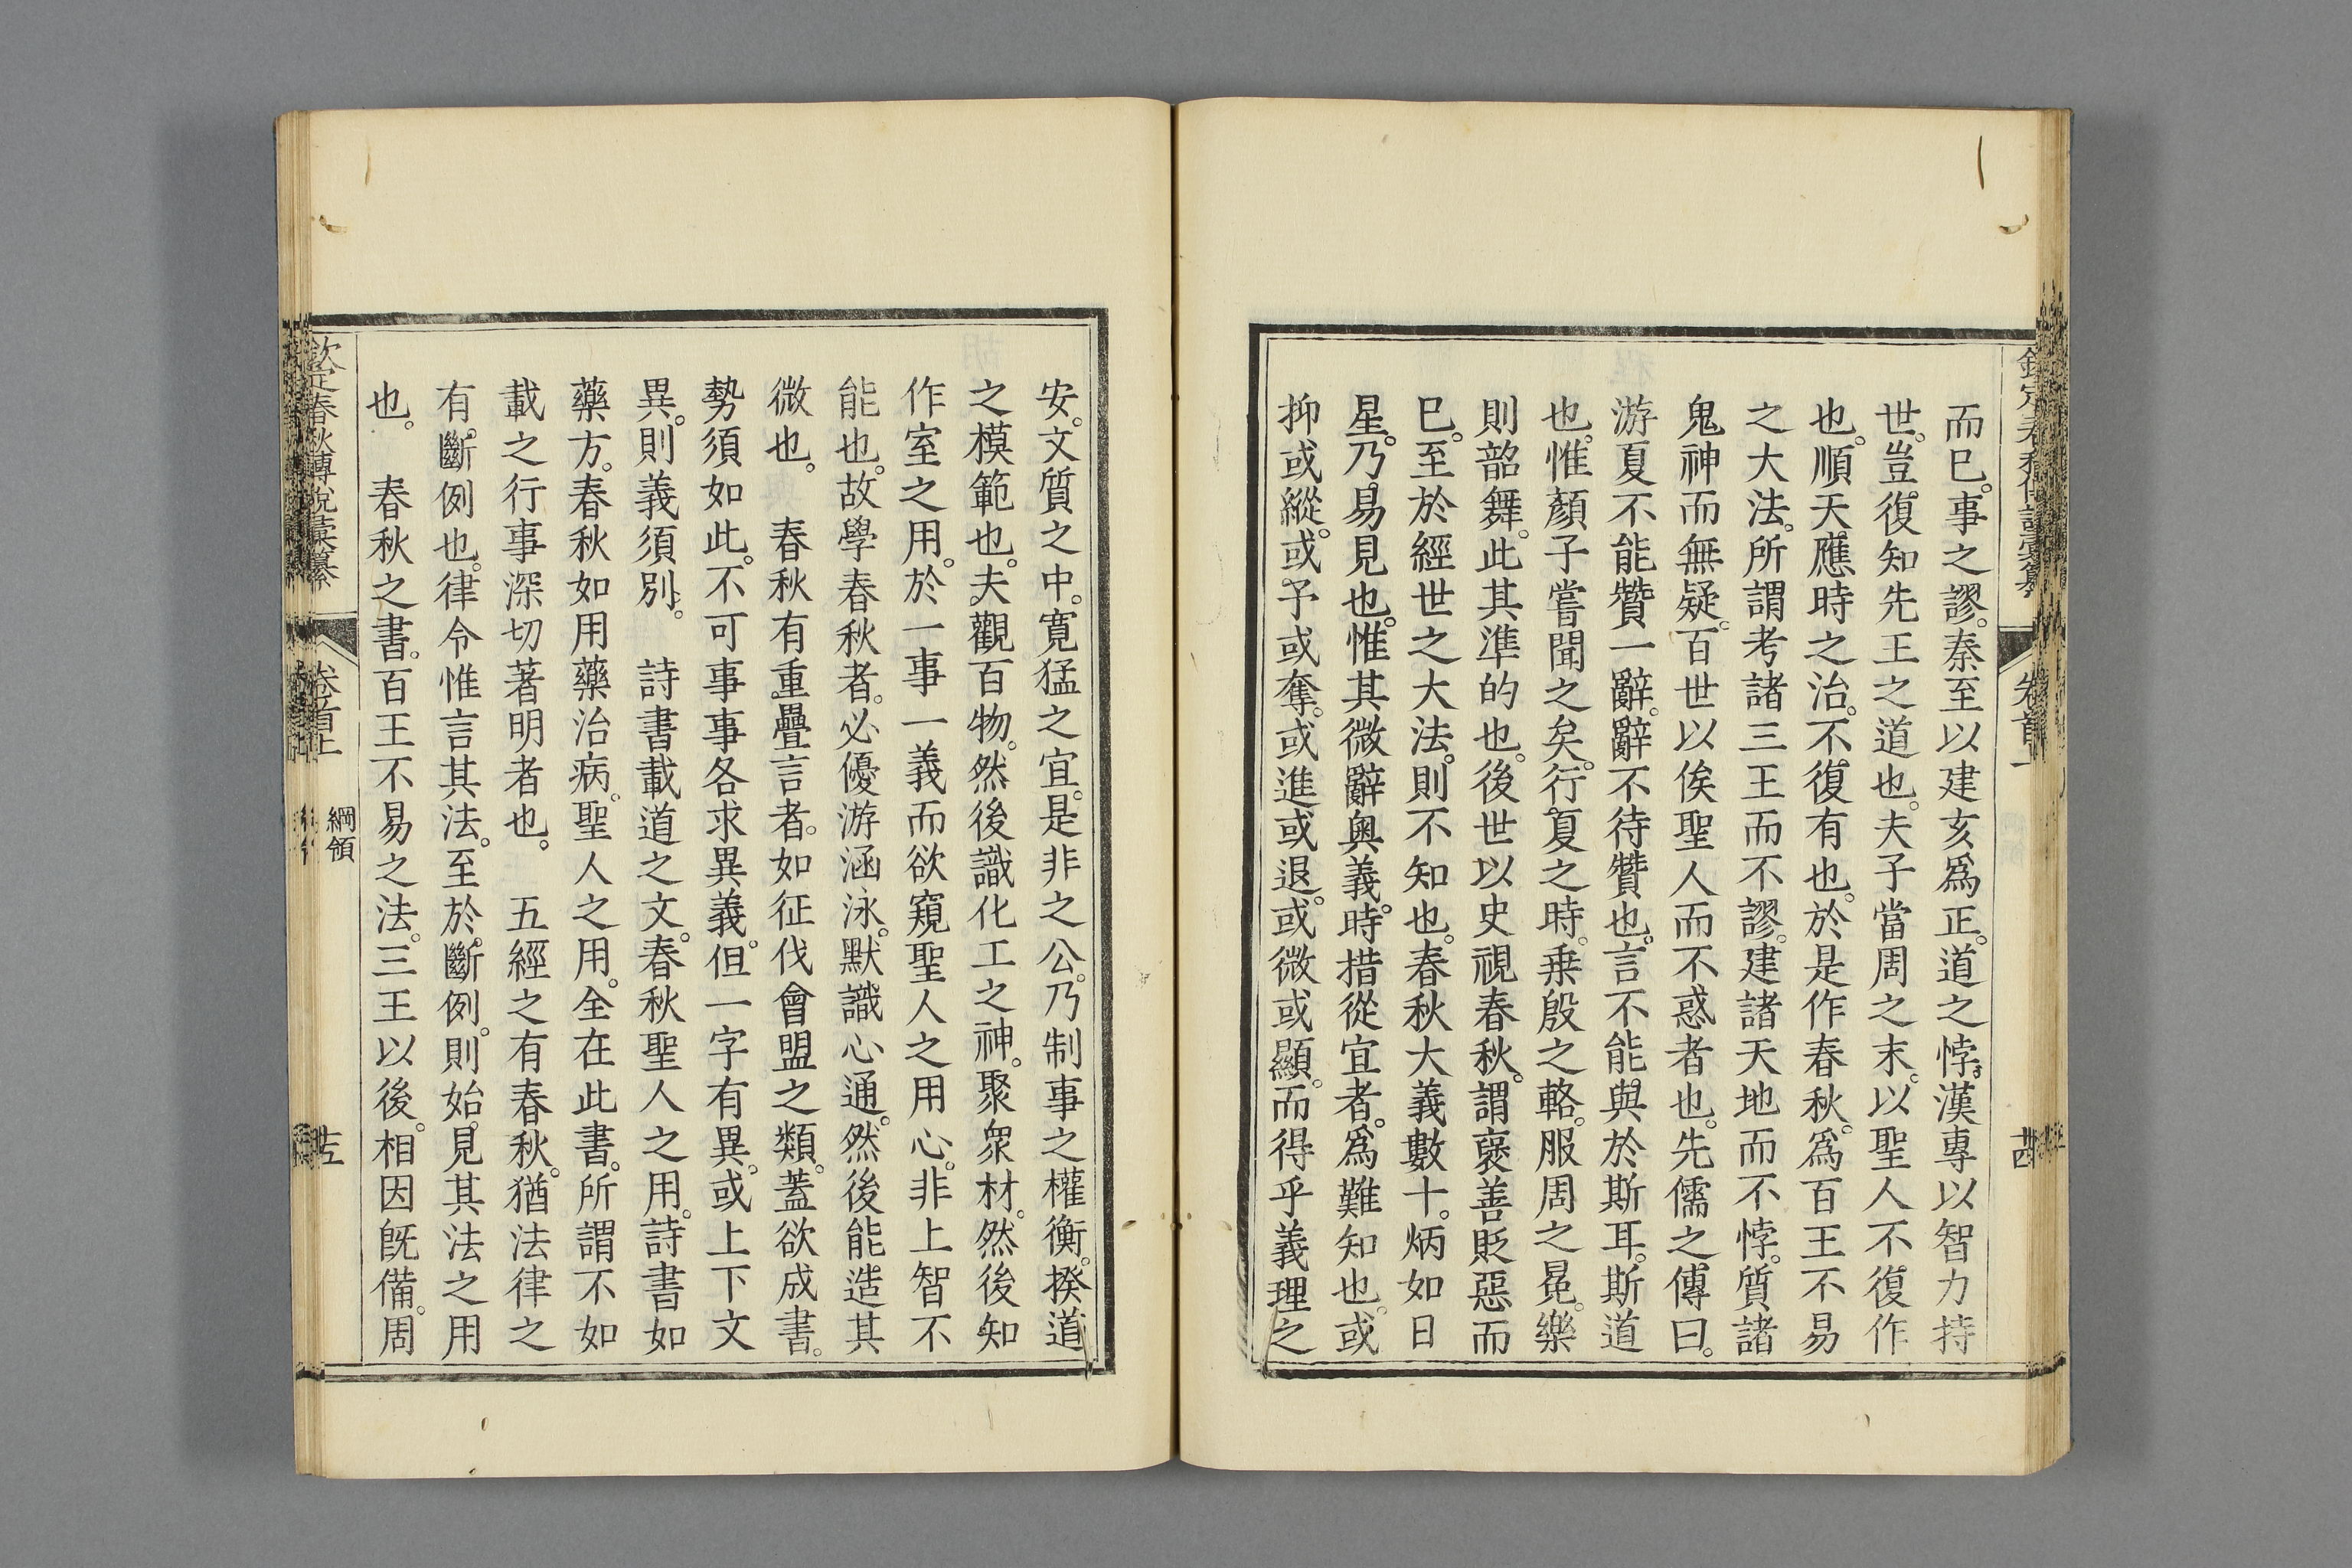 而已。事之謬。秦至以建亥爲正。道之悖。漢專以智力持
世。豈復知先王之道也。夫子當周之末。以聖人不復作
也。順天應時之治。不復有也。於是作春秋。爲百王不易
之大法。所謂考諸三王而不謬。建諸天地而不悖。質諸
鬼神而無疑。百世以俟聖人而不惑者也。先儒之傳曰。
游夏不能贊一辭。辭不待贊也。言不能與於斯耳。斯道
也。惟顏子嘗聞之矣。行夏之時。乗殷之輅。服周之冕。樂
則韶舞。此其準的也。後世以史視春秋。謂襃善貶惡而
已。至於經世之大法。則不知也。春秋大義數十。炳如日
星。乃易見也。惟其微辭奥義。時措從宜者。爲難知也。或
抑或縱。或予或奪。或進或退。或微或顯。而得乎義理之
安。文質之中。寛猛之宜。是非之公。乃制事之權衡。揆道
之模範也。夫觀百物。然後識化工之神。聚衆材。然後知
作室之用。於一事一義而欲窺聖人之用心。非上智不
能也。故學春秋者。必優游涵泳。默識心通。然後能造其
微也。　春秋有重疊言者。如征伐會盟之類。蓋欲成書。
勢須如此。不可事事各求異義。但一字有異。或上下文
異。則義須別。　詩書載道之文。春秋聖人之用。詩書如
藥方。春秋如用藥治病。聖人之用。全在此書。所謂不如
載之行事深切著明者也。　五經之有春秋。猶法律之
有斷例也。律令惟言其法。至於斷例。則始見其法之用
也。　春秋之書。百王不易之法。三王以後。相因旣備。周
欽定春秋傳說彙纂　卷首上　綱領